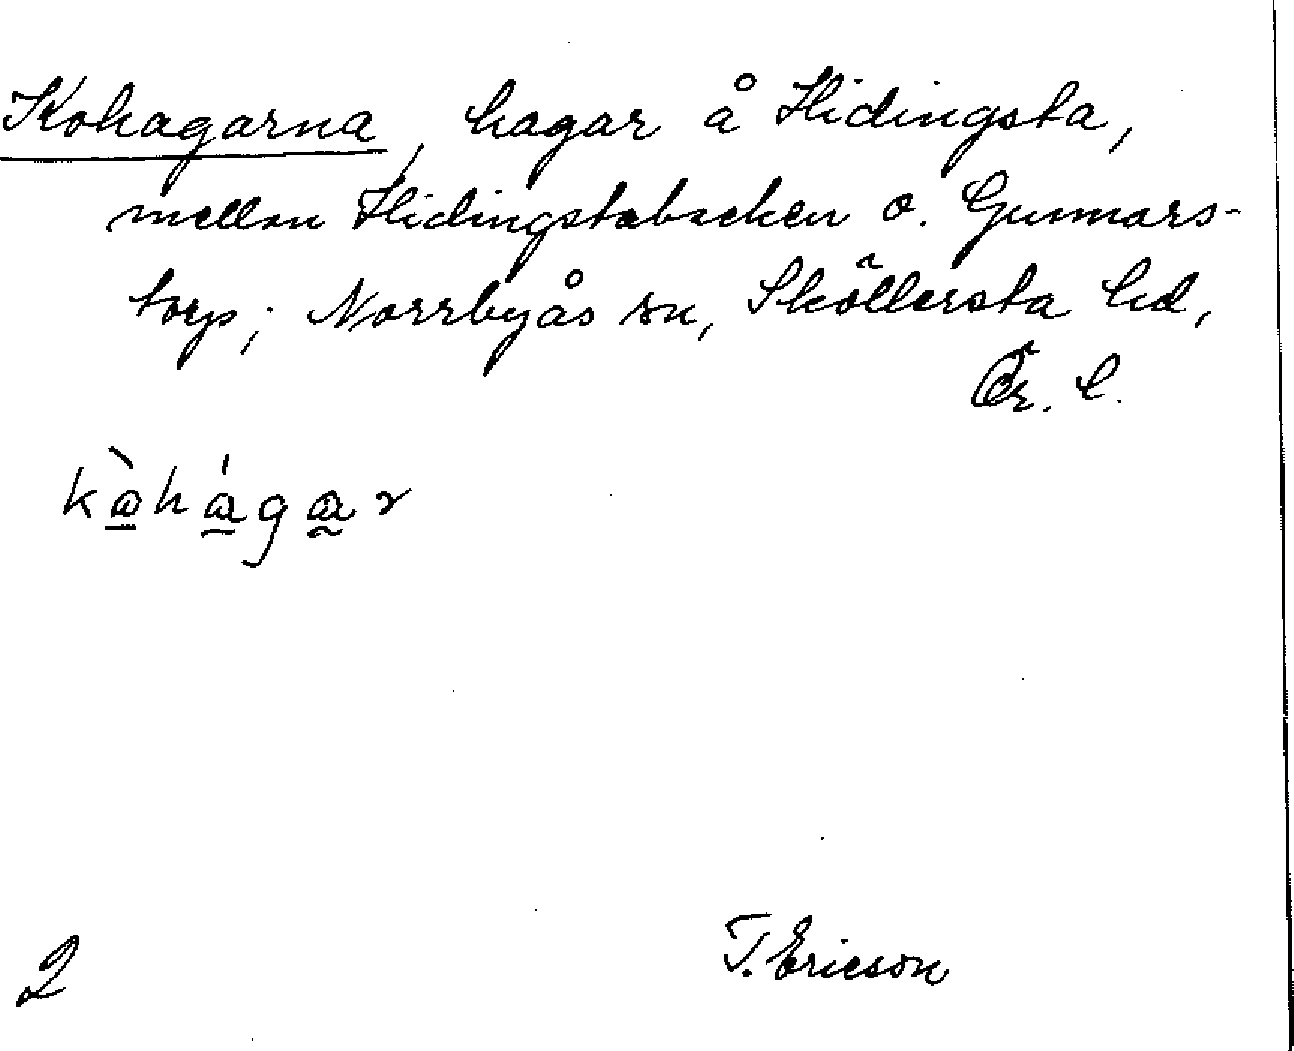 Kohagarna, hagar å Hidingsta,
mellan Hidingstabacken o. Gunnars-
torp; Norrbyås sn, Sköllersta hd,
Ör. l.
kòhágar
2
T. Ericson